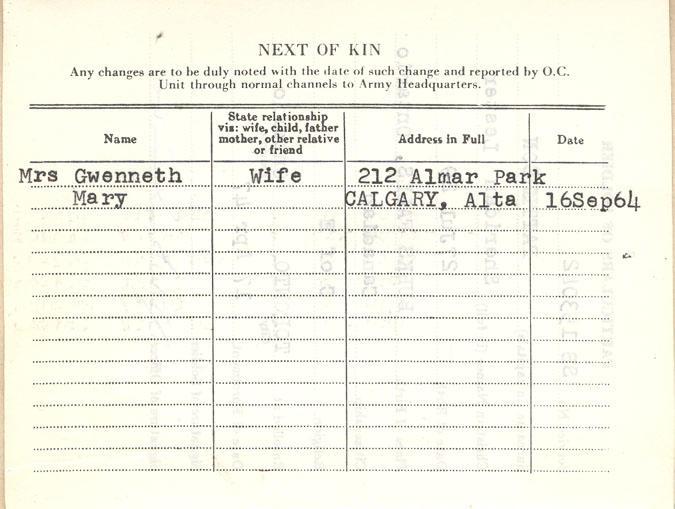 NEXT OF KIN
Any changes are to be duly noted with the date of such change and reported by O.C.
Unit through normal channels to Army Headquarters.
Name
State relationship
vis: wife, child, father
mother, other relative
or friend
Address in Full
Date
Mrs Gwenneth Wife 212 Almar Park
Mary CALGARY, Alta 16Sep64